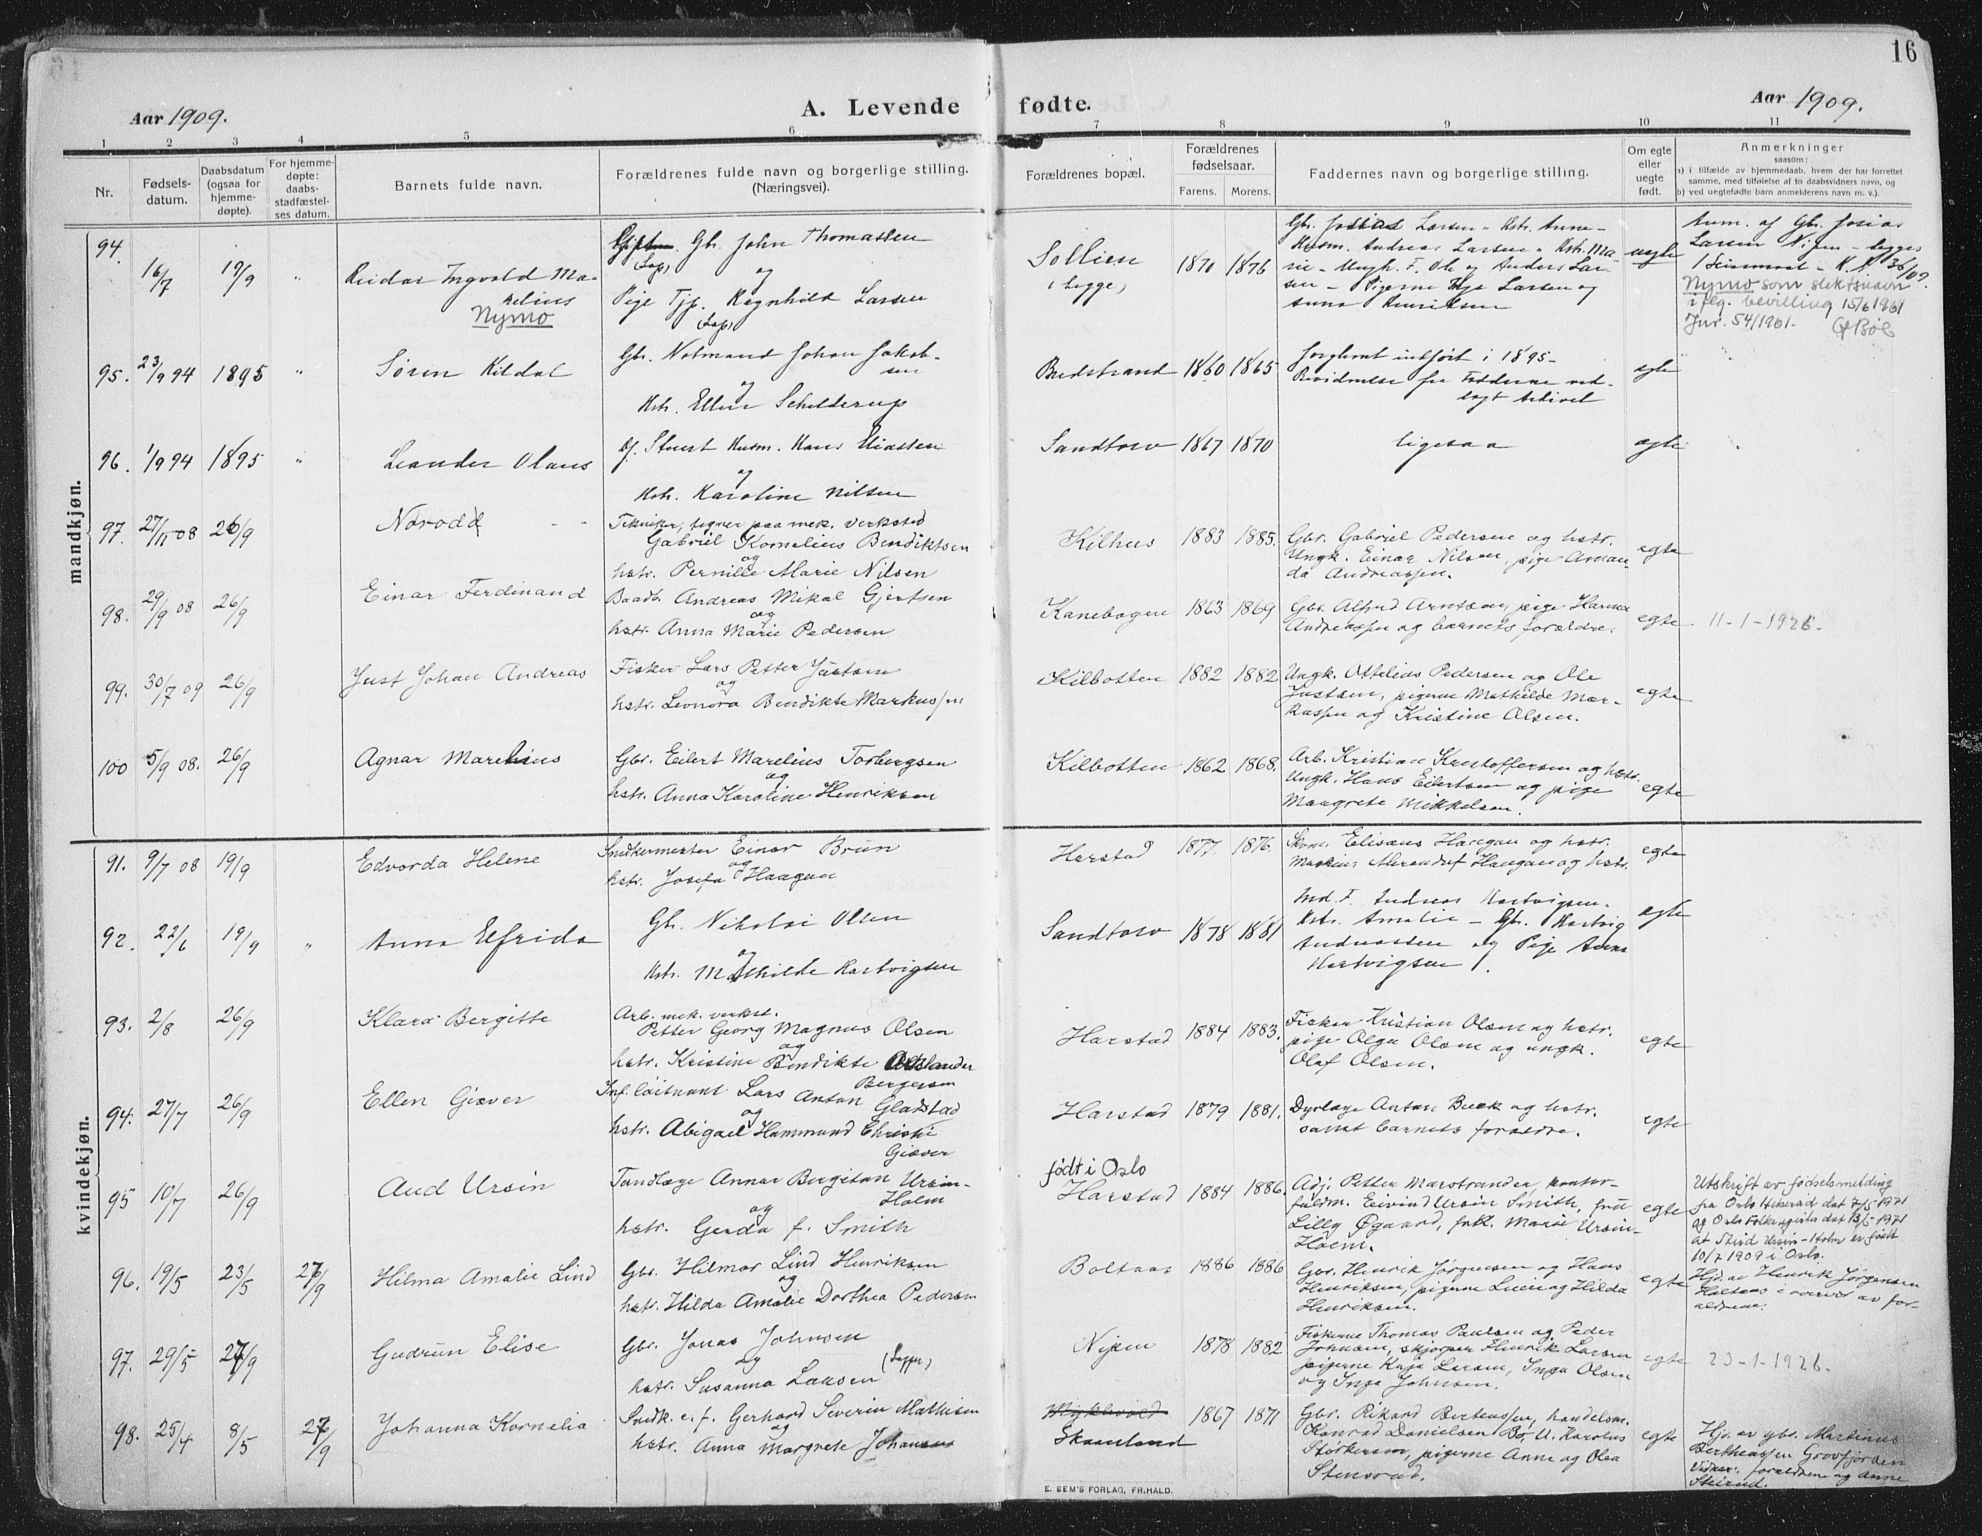 16
Aar 1909.
A. Levende fødte.
Aar 1909.
1 2 3 4 5 6 7 8 9 10 11
Nr.
Fødsels-
datum.
Daabsdatum
(ogsaa for
hjemme-
døpte).
For hjemme-
døpte:
daabs-
stadfæstel-
ses datum.
Barnets fulde navn.
Forældrenes fulde navn og borgerlige stilling.
(Næringsvei).
Forældrenes bopæl.
Forældrenes
fødselsaar.
Farens. Morens.
Faddernes navn og borgerlige stilling.
Om egte
eller
uegte
født.
Anmerkninger
saasom:
a) i tilfælde av hjemmedaab, hvem der har forrettet
samme, med tilføielse af to daabsvidners navn, og
b) ved uegtefødte barn anmelderens navn m. v.).
mandkjøn.
94. 16/7 19/9 "
Reidar Ingvald Ma-
relius
Nymo
Gb. John Thomassen
(Lap)
og
Pige Tjp. Ragnhild Larsen
(Lap)
Sollien
i Legge,
1870 1876
Gb. Josias Larsen, Kstr. Anne-
Husm. Andreas Larsen, Kstr. Ma-
rie - Ungk. F. Ole og Anders Lar-
sen - Pigerne Kaja Larsen og
Anna Henriksen
uegte
Anm. af Gb. Josias
Larsen Nipen - Legges
Nymo som slektsnavn
iflg. bevilling 15/6 1961
Jnr. 54/1961.
95. 23/9 94 1895 "
Søren Kildal
Gb. Normand Johan Jakob-
sen
og
Kstr. Ellen Schelderup
Brudstrand 1860 1865
forglemt indført i 1895-
Bevidnelse fra Fadderne ved-
lagt Arkivet
egte
96. 1/9 94 1895 "
Leander Olaus
Df. Stuert Husm. Hans Eliassen
og
Kstr. Karoline Nilsen
Sandtorv 1867 1870
ligesaa
egte
97. 27/11 08 26/9
Norodd
Tekniker, tegner paa mek. verksted
Gabriel Kornelius Bendiktsen
og
hstr. Pernille Marie Nilsen
Kilhus 1883 1885.
Gbr. Gabriel Pedersen og hstr.
Ungk. Einar Nilsen, pige Aman-
da Andreassen.
egte
98. 29/9 08 26/9
Einar Ferdinand
Baadb. Andreas Mikal Gjertsen
og
hstr. Anna Marie Pedersen
Kanebogen 1863 1869
Gbr. Alfred Arntsen, pige Hanna
Andreassen og barnets forældre.
egte
11-1-1926-
99. 30/7 09 26/9
Just Johan Andreas
Fisker Lars Petter Justsen
og
hstr. Leonora Bendikte Markussen
Kilbotten 1882 1882
Ungk. Ottelius Pedersen og Ole
Justsen, pigerne Mathilde Mar-
kussen og Kristine Olsen.
egte
100 5/9 08. 26/9
Agnar Marelius
Gbr. Eilert Marelius Torbergsen
og
hstr. Anna Karoline Henriksen
Kilbotten 1862 1868.
Arb. Kristian Kristoffersen og hstr.
Ungk. Hans Eilertsen og pige
Maagrete Mikkelsen.
egte
kvindekjøn.
91. 9/7 08 19/9
Edvorda Helene
Snidkermester Einar Brun
og
hstr. Josefa Haagan
Harstad 1877. 1876.
Skom. Elisæus Haugan og hstr.
egte
92. 22/6 19/9 "
Anna Elfrida
Gb. Nikolai Olsen
og
Kstr. Mathilde Hartvigsen
Sandtorv 1878 1881
Md. F. Andreas Hartvigsen.
Kstr. Amalie - Gb. Hartvig
Andreassen og Pige Anna
Hartvigsen.
egte
93. 2/8 26/9
Klara Bergitte
Arb. mek. verkst.
Petter Georg Magnus Olsen
og
hstr. Kristine Bendikte
Bergersen
Harstad 1884 1883.
Fisker Kristian Olsen og hstr.
pige Olga Olsen og ungk.
Olaf Olsen.
egte
94. 27/7 26/9
Ellen Giæver
Inf. løitnant Lars Anton Gladstad
og
hstr. Abigael Hammond Christie
Giæver
Harstad 1879 1881.
Dyrlæge Anton Buck og hstr.
samt barnets forældre.
egte
95 10/7 26/9
Aud Ursin
Tandlæge Annar Bergiton Ursin-
Holm
og
hstr. Gerda f. Smith
født i Oslo
Harstad 1884 1886.
Adj. Petter Marstrander, kontor-
fuldm. Eivind Ursin Smith, fru
Lilly Øgaard, frkl. Marie Ursin-
Holm.
egte
Utskrift av fødselsmelding
fra Oslo Helseråd dat 7/5 1971
og Oslo Folkeregister dat 13/5 1971
at Ursin-Holm er født
10/7 1909 i Oslo.
96. 19/5 23/5 26/9
Hilma Amalie Lind
Gbr. Hilmar Lind Henriksen
og
hstr. Hilda Amalie Dorthea Pedersen
Boltaas 1886 1886
Gbr. Henrik Jørgensen og Hans
Henriksen, pigerne Lucie og Hilda
Henriksen.
egte
Hjd. av Henrik Jørgensen
Holtens i overvær av for-
ældrene.
97. 29/5 27/9
Gudrun Elise
Gbr. Jonas Johnsen
og (Lapper)
hstr. Susanna Larsen
Nipen 1878 1882
Fiskerne Thomas Paulsen og Peder
Johnsen, skipper Henrik Larsen
pigerne Kaja Larsen, Inga Olsen
og Inga Johnsen.
egte
23-1-1926-
98. 25/4 8/5 26/9
Johanna Kornelia
Snidk. e. f. Gerhard Severin Mathisen
og
hstr. Anna Margrete Johansen
Skaanland
1867 1871
Gbr. Rikard Berteussen, handelsm.
Konrad Danielsen Bo, U. Karolus
Størkersen, pigerne Anne og Olea
Stensrud.
egte
Hjd. av gbr. Martinus
Bertheussen Grovfjorden
Vidner: forældrene og Anne
E. SEM'S FORLAG, FR.HALD.